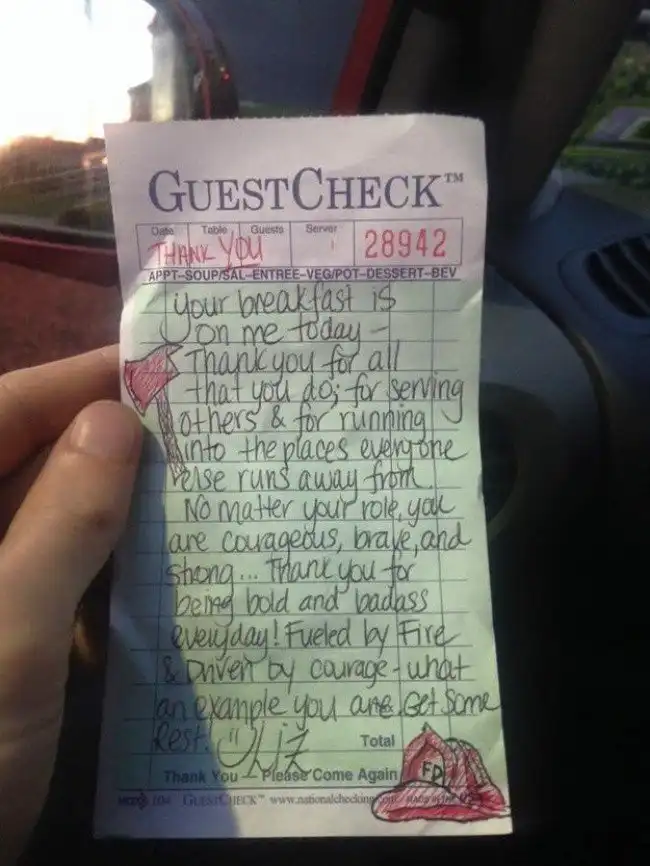 GUESTCHECK™
Date Table Guests Server
THANK YOU 28942
APPT-SOUP/SAL-ENTREE-VEG/POT-DESSERT-BEV
your breakfast is
on me today -
Thank you for all
that you do; for serving
others & for running
into the places everyone
else runs away from.
No matter your role, you
are courageous, brave, and
strong... Thank you for
being bold and badass
everyday! Fueled by Fire
& Driven by courage - what
an example you are. Get Some
Rest! Liz
Total
FD
Thank You Please Come Again
GUESTCHECK™ www.nationalchecking.com